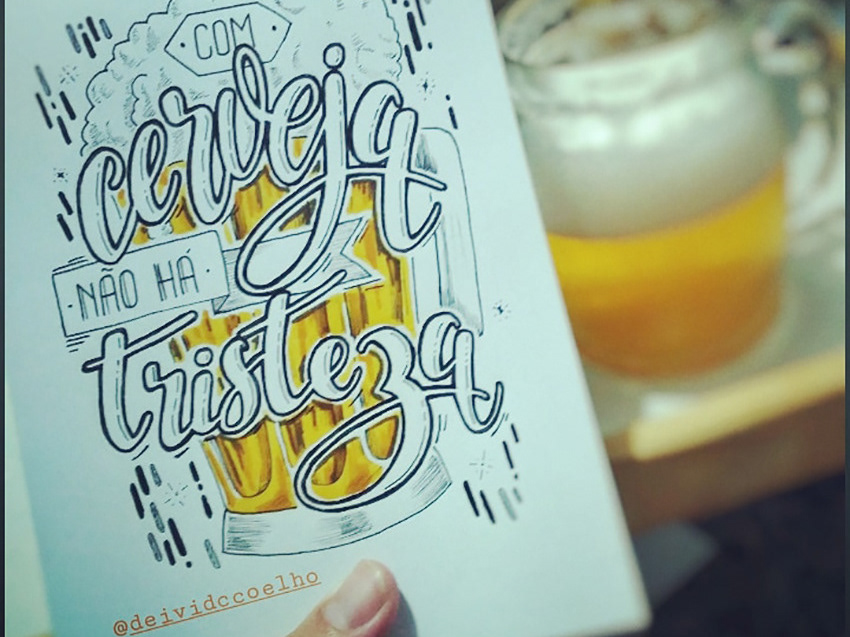 COM
cerveja
NÃO HÁ
tristeza
@deividccoelho